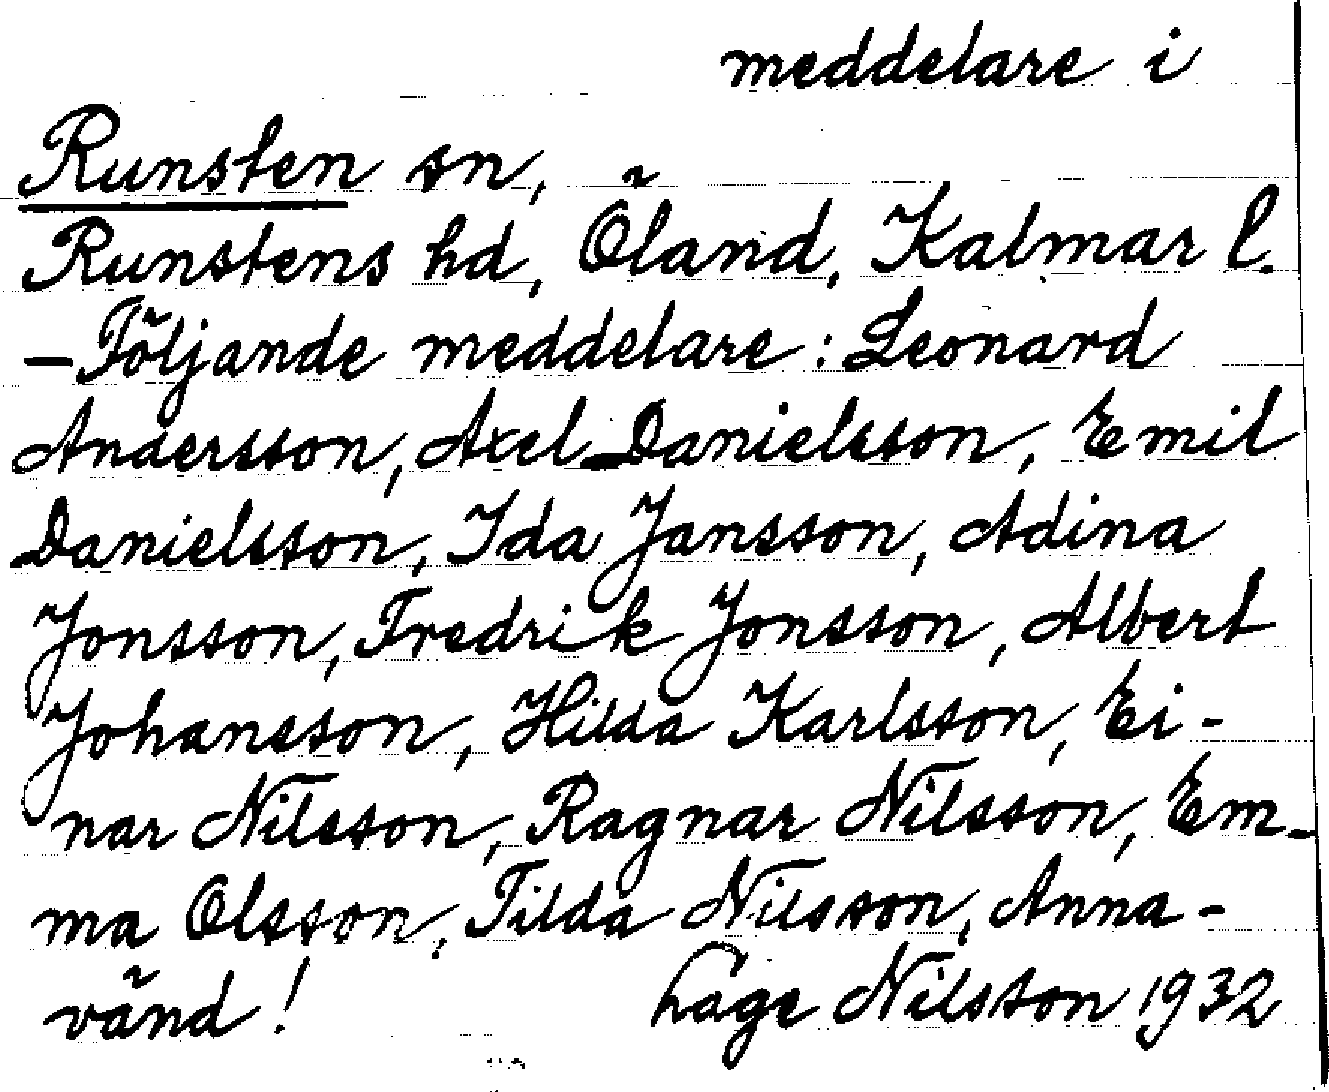 meddelare i
Runsten sn,
Runstens hd, Öland, Kalmar l.
– Följande meddelare: Leonard
Andersson, Axel Danielsson, Emil
Danielsson, Ida Jansson, Adina
Jonsson, Fredrik Jonsson, Albert
Johansson, Hilda Karlsson, Ei-
nar Nilsson, Ragnar Nilsson, Em-
ma Olsson, Tilda Nilsson, Anna-
vänd! Lage Nilsson 1932